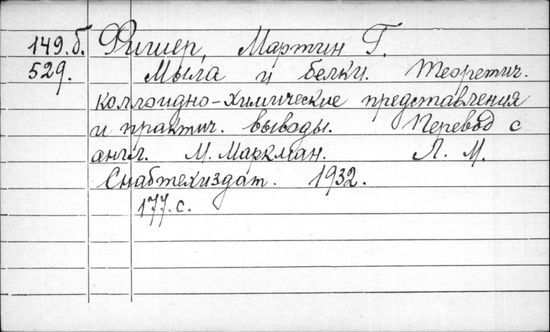 149.б. Фишер, Мартин Г.
529. Мыла и белки. Теоретич.
коллоидно-химические представления
и практич. выводы. Перевод с
англ. М. Маркман. Л. М.
Снабтехиздат. 1932.
177.с.